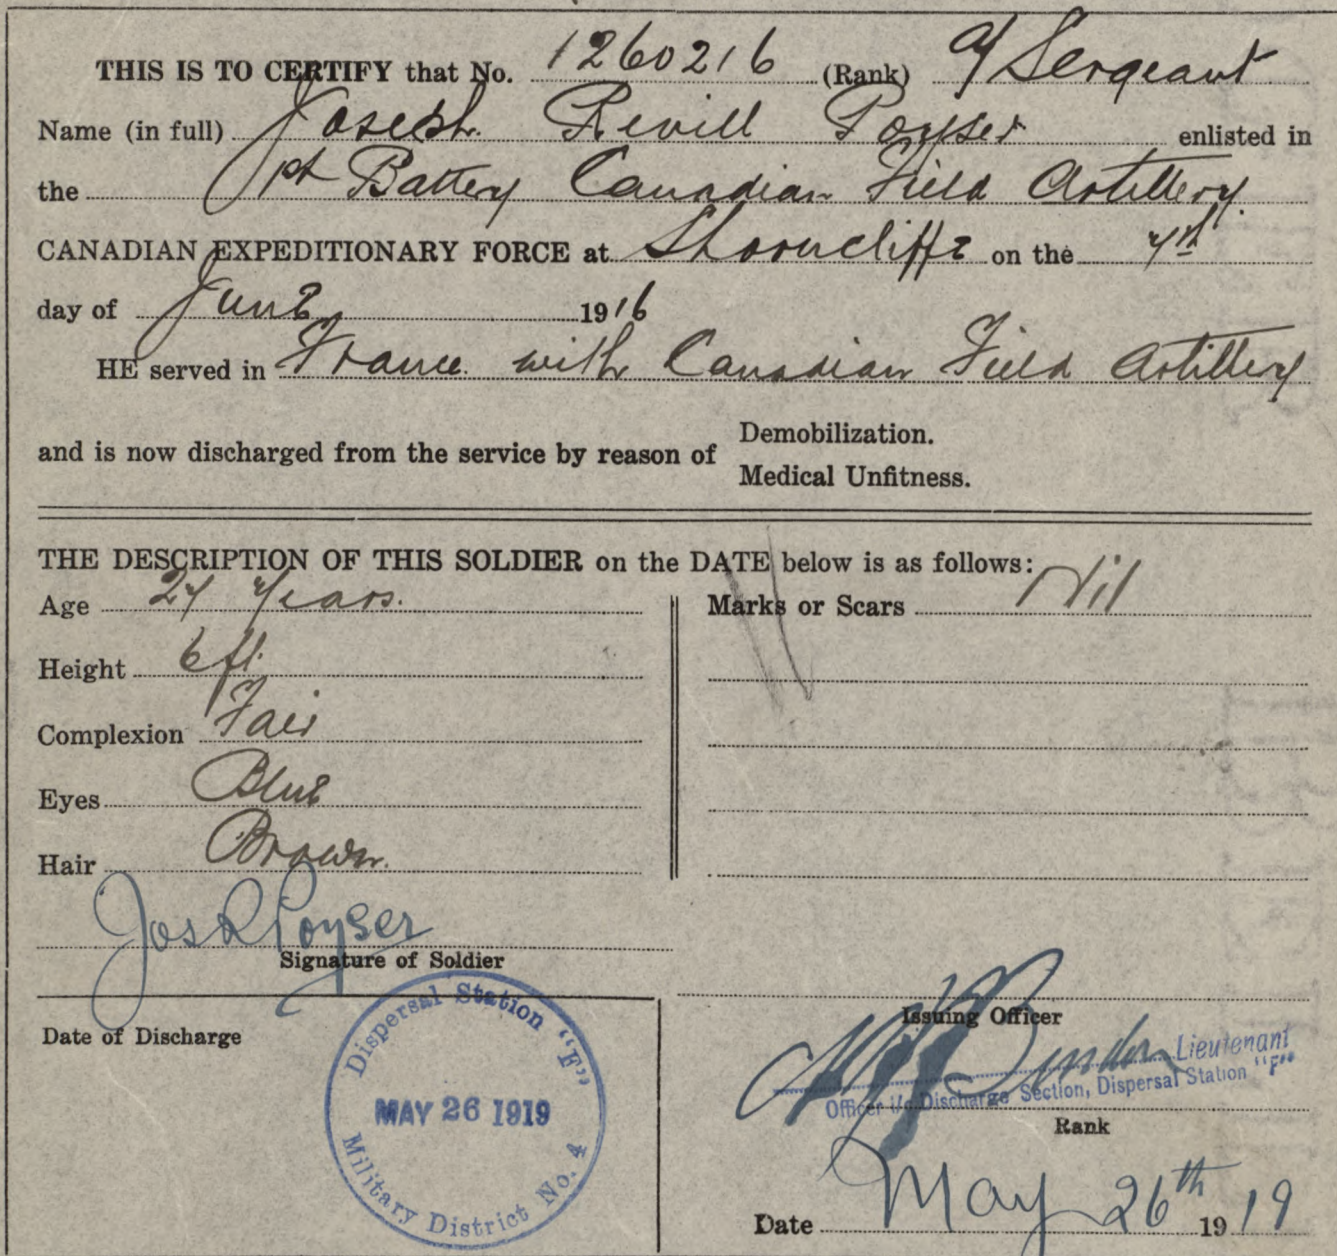 THIS IS TO CERTIFY that No. 1260216 (Rank) a/Sergeant
Name (in full) Joseph Revill Poyser enlisted in
the 1st Battery Canadian Field Artillery.
CANADIAN EXPEDITIONARY FORCE at Shorncliffe on the 7th
day of June 1916
HE served in France with Canadian Field Artillery
and is now discharged from the service by reason of Demobilization.
Medical Unfitness.
THE DESCRIPTION OF THIS SOLDIER on the DATE below is as follows:
Age 27 Years.
Marks or Scars Nil
Height 6 ft.
Complexion Fair
Eyes Blue
Hair Brown.
Jos R Poyser
Signature of Soldier
Date of Discharge
Dispersal Station "F"
MAY 26 1919
Military District No. 4
Issuing Officer
Lieutenant
Officer i/c Discharge Section, Dispersal Station "F"
Rank
Date May 26th 1919